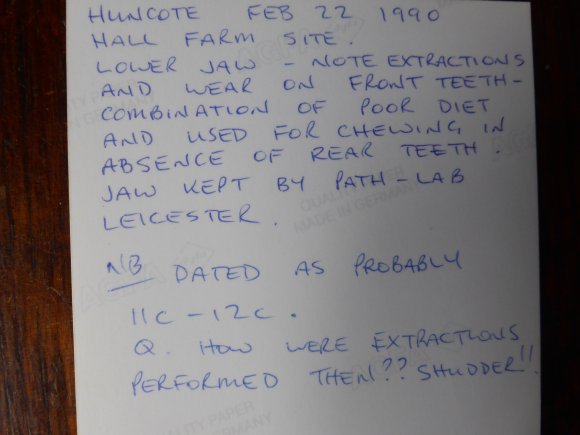 HUNCOTE FEB 22 1990
HALL FARM SITE.
LOWER JAW - NOTE EXTRACTIONS
AND WEAR ON FRONT TEETH -
COMBINATION OF POOR DIET
AND USED FOR CHEWING IN
ABSENCE OF REAR TEETH.
JAW KEPT BY PATH-LAB
LEICESTER.
NB DATED AS PROBABLY
11c - 12c.
Q. HOW WERE EXTRACTIONS
PERFORMED THEN?? SHUDDER!!
QUALITY PAPER
MADE IN GERMANY
AGFA